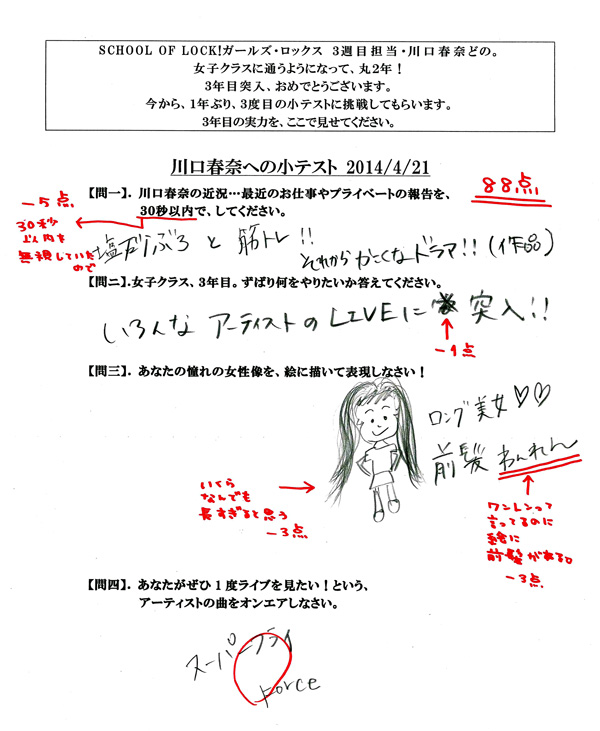 SCHOOL OF LOCK!ガールズ・ロックス 3週目担当・川口春奈どの。
女子クラスに通うようになって、丸2年！
3年目突入、おめでとうございます。
今から、1年ぶり、3度目の小テストに挑戦してもらいます。
3年目の実力を、ここで見せてください。
川口春奈への小テスト 2014/4/21
88点
【問一】. 川口春奈の近況…最近のお仕事やプライベートの報告を、
30秒以内で、してください。
-5点
30秒
以内を
無視していた
ので
塩ぶろと筋トレ!!
それから かこくなドラマ!!(作品)
【問二】.女子クラス、3年目。ずばり何をやりたいか答えてください。
いろんな アーティストの LIVEに 突入!!
-1点
【問三】. あなたの憧れの女性像を、絵に描いて表現しなさい！
ロング美女♡♡
前髪 わんれん
いくら
なんでも
長すぎると思う
-3点
ワンレンって
言ってるのに
前髪がある。
-3点
【問四】. あなたがぜひ1度ライブを見たい！という、
アーティストの曲をオンエアしなさい。
スーパーフライ
Force